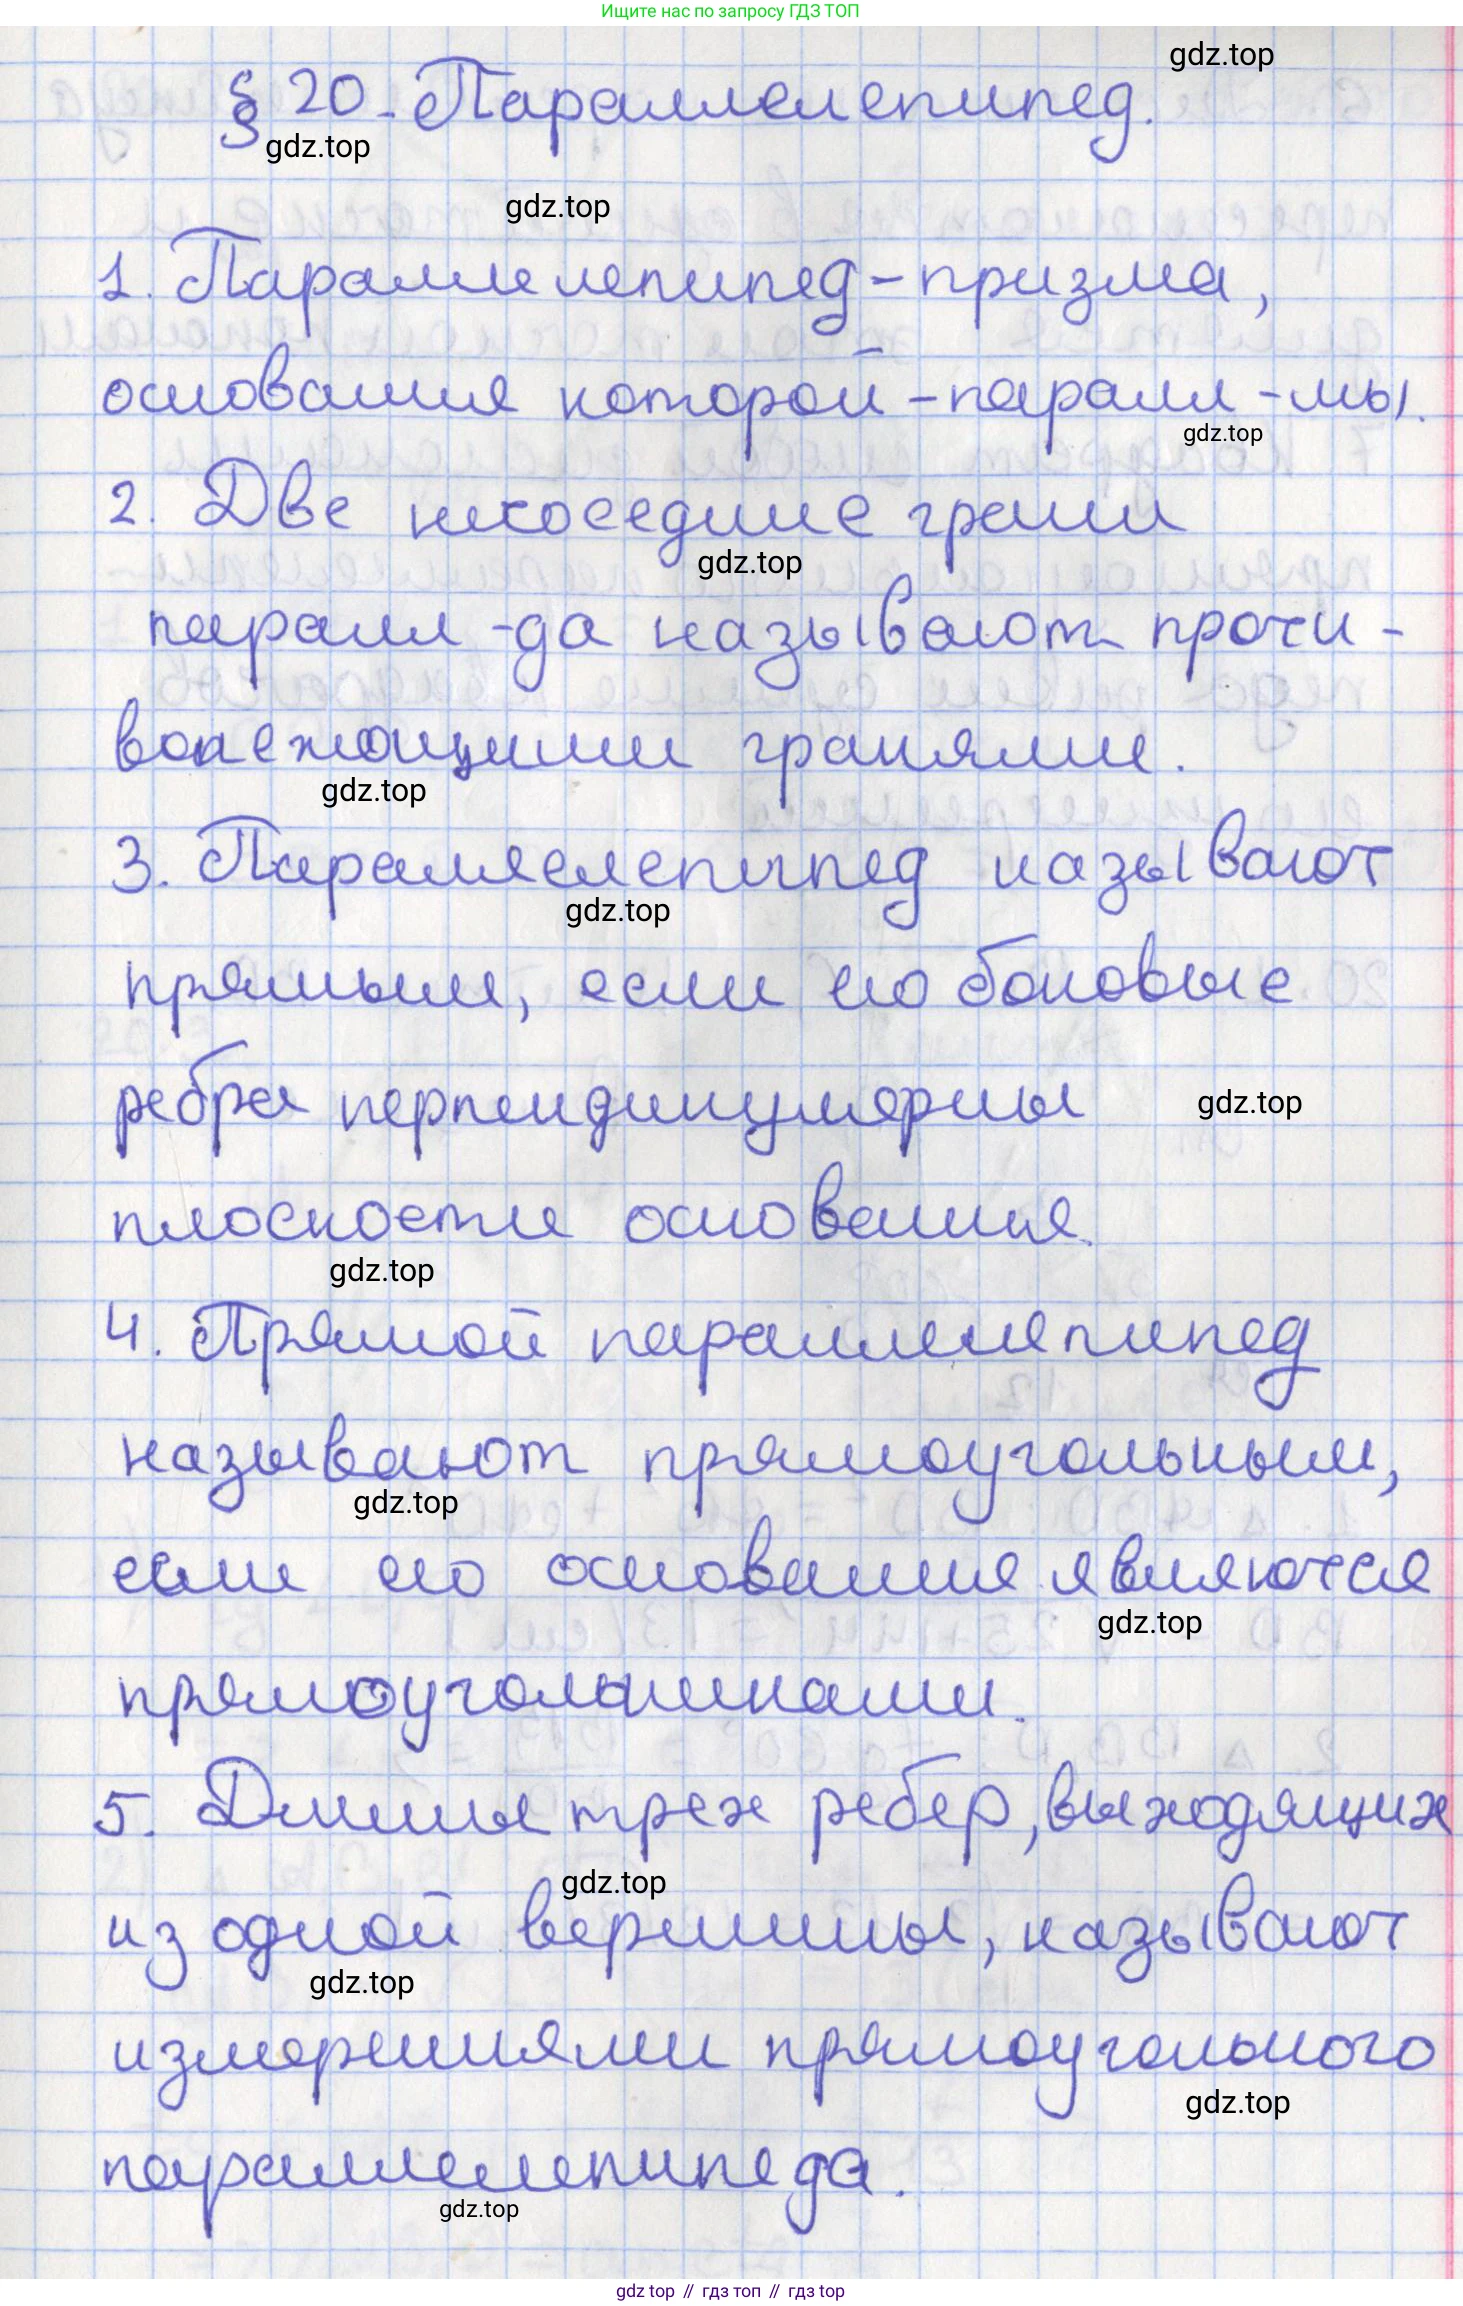 Ищите нас по запросу ГДЗ ТОП
gdz.top
§ 20. Параллелепипед.
gdz.top
gdz.top
1. Параллелепипед - призма,
основания которой - паралл-мы.
gdz.top
2. Две несоседние грани
gdz.top
паралл-да называют проти-
волежащими гранями.
gdz.top
3. Параллелепипед называют
gdz.top
прямым, если его боковые
ребра перпендикулярны
gdz.top
плоскости основания.
gdz.top
4. Прямой параллелепипед
называют прямоугольным,
gdz.top
если его основания являются
gdz.top
прямоугольниками.
5. Длины трех ребер, выходящих
gdz.top
из одной вершины, называют
gdz.top
измерениями прямоугольного
gdz.top
параллелепипеда.
gdz.top
gdz top // гдз топ // gdz top